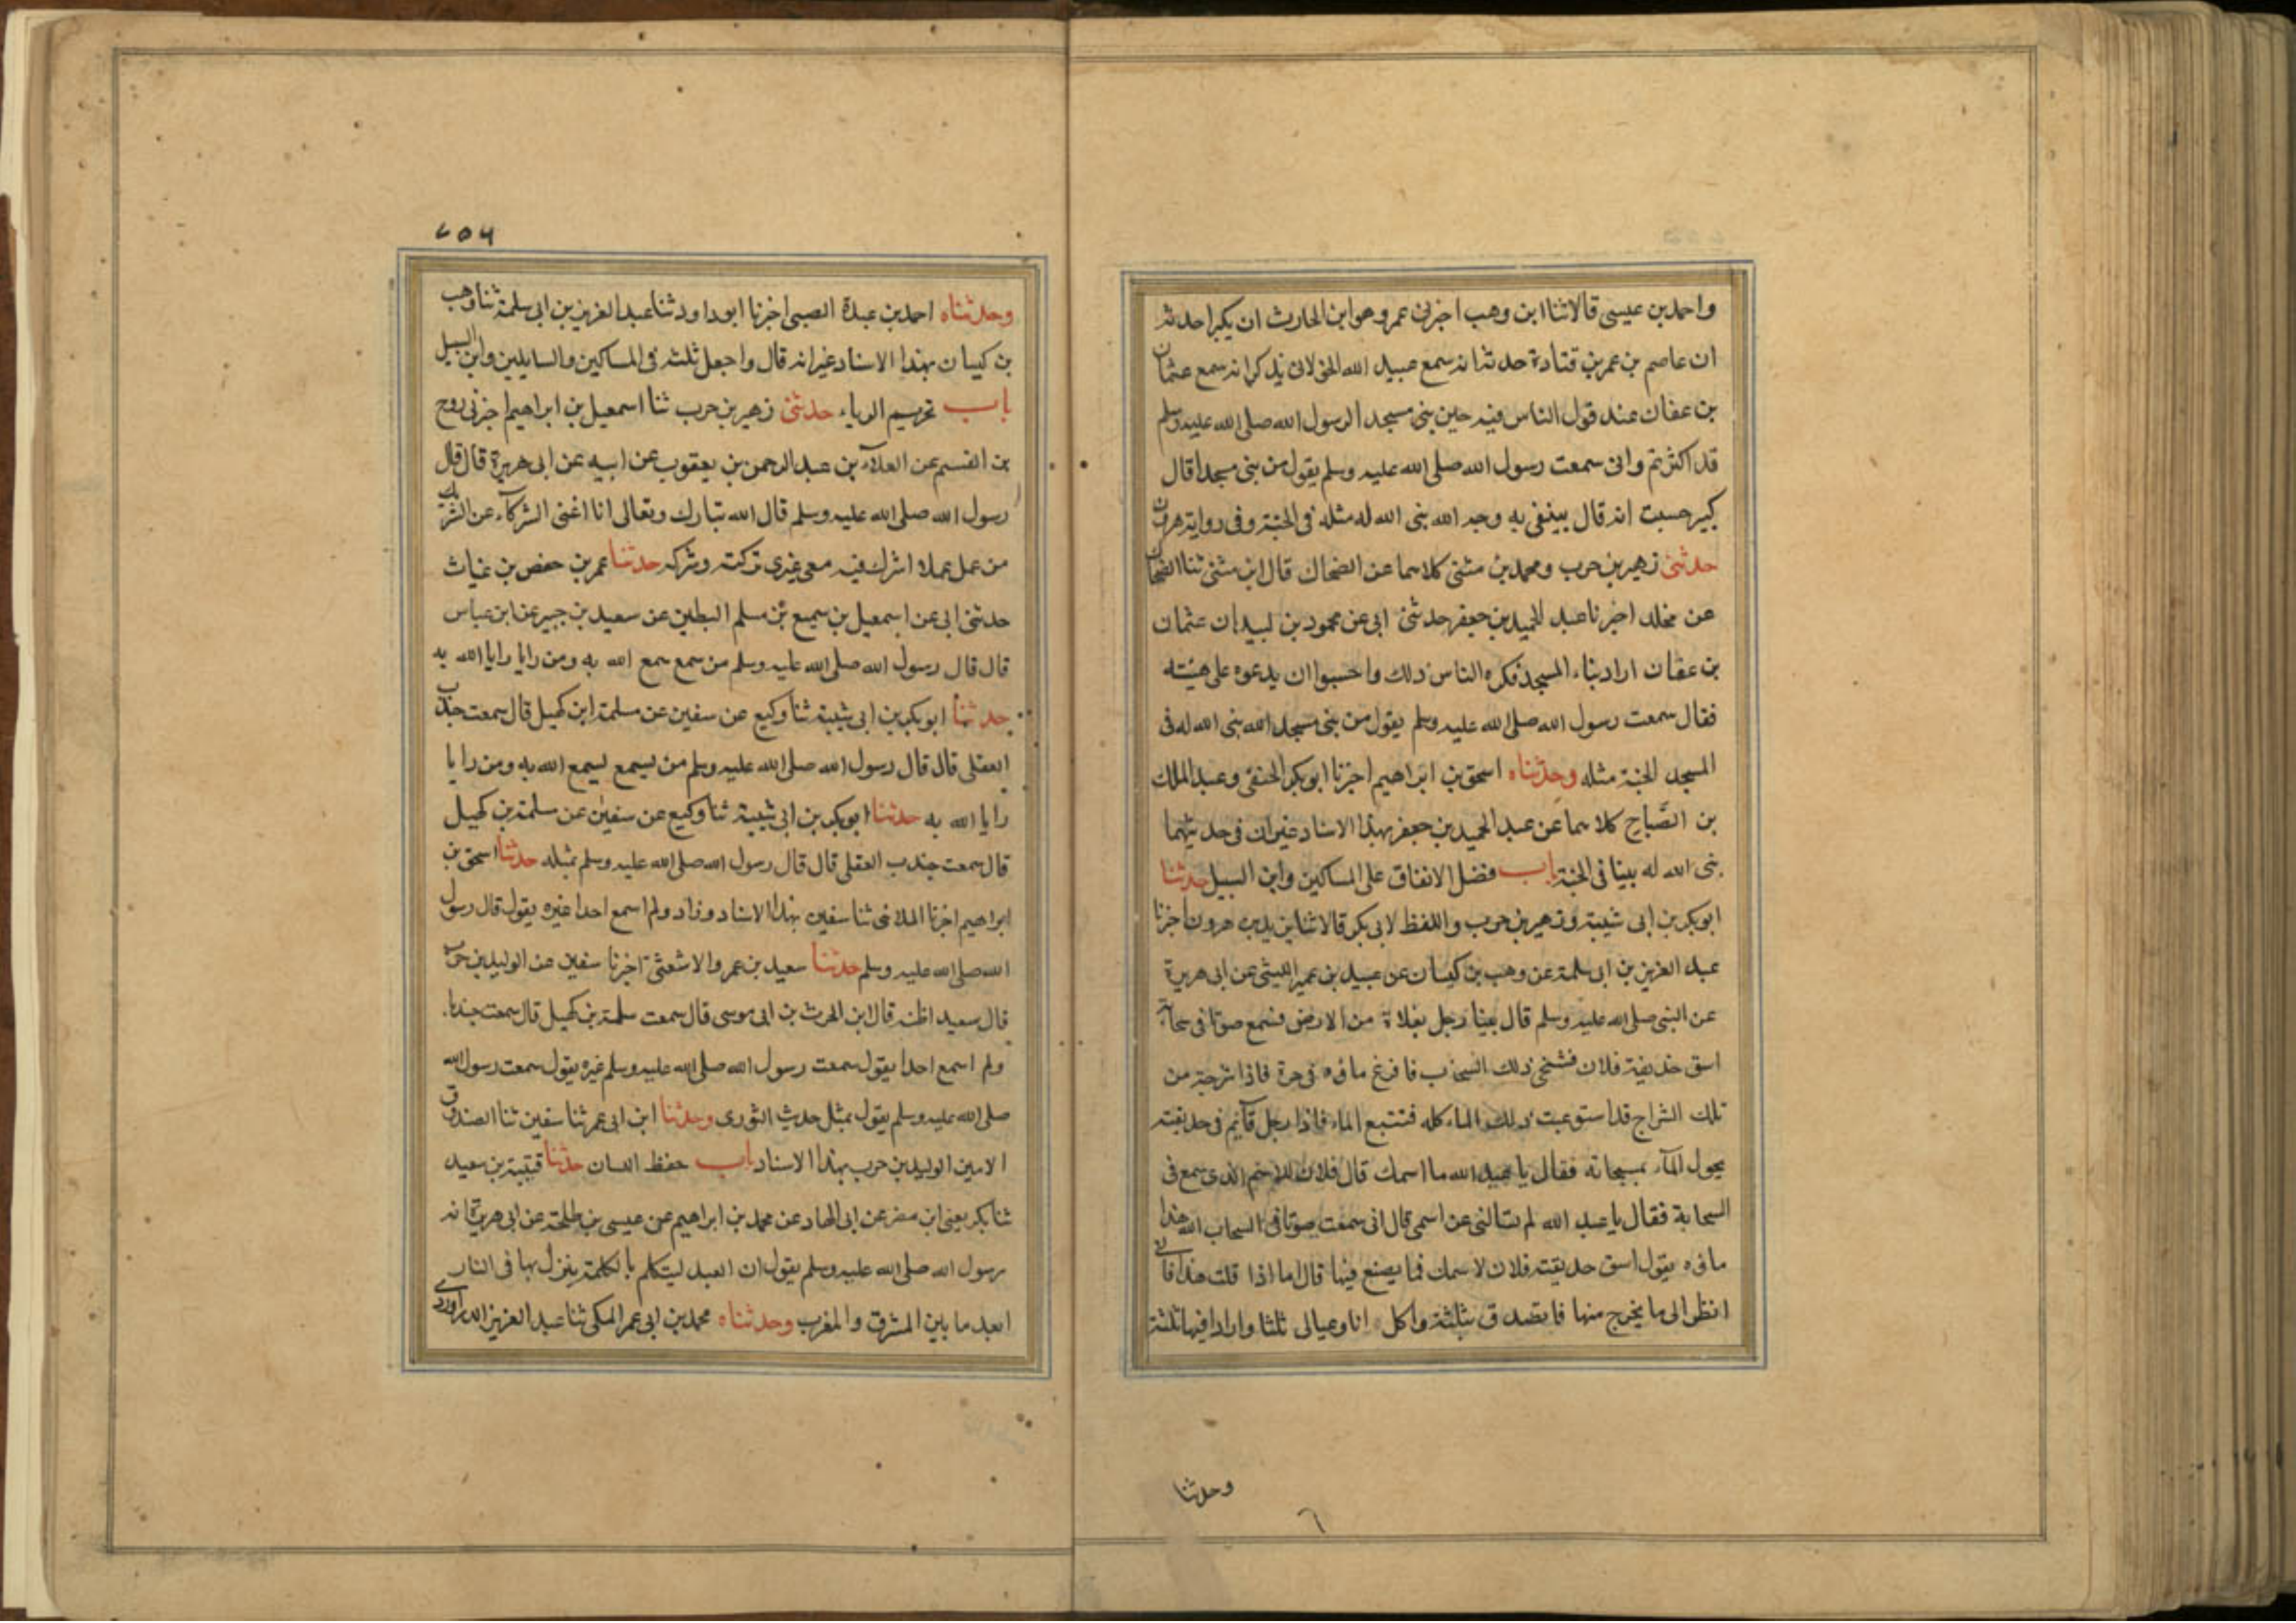 واحمد بن عيسى قالا ثنا ابن وهب اخبرنى عمرو هو ابن الحارث ان بكيرا حدثه
ان عاصم بن عمر بن قتادة حدثه انه سمع عبيد الله الخولانى يذكر انه سمع عثمان
بن عفان عند قول الناس فيه حين بنى مسجد الرسول الله صلى الله عليه وسلم
قد اكثرتم وانى سمعت رسول الله صلى الله عليه وسلم يقول من بنى مسجدا قال
بكير حسبت انه قال يبتغى به وجه الله بنى الله له مثله فى الجنة وفى رواية هرون
حدثنى زهير بن حرب ومحمد بن مثنى كلاهما عن الضحاك قال ابن مثنى ثنا الضحاك
عن مخلد اخبرنا عبد الحميد بن جعفر حدثنى ابى عن محمود بن لبيد ان عثمان
بن عفان اراد بناء المسجد فكره الناس ذلك واحسبوا ان يدعوه على هيئته
فقال سمعت رسول الله صلى الله عليه وسلم يقول من بنى مسجدا لله بنى الله له فى
المسجد الجنة مثله وحدثناه اسحق بن ابراهيم اخبرنا ابو بكر الحنفى وعبد الملك
بن الصَّباح كلاهما عن عبد الحميد بن جعفر بهذا الاسناد غير ان فى حديثهما
بنى الله له بيتا فى الجنة باب فضل الانفاق على المساكين وابن السبيل حدثنا
ابو بكر بن ابى شيبة وزهير بن حرب واللفظ لابى بكر قالا ثنا يزيد بن هرون اخبرنا
عبد العزيز بن ابى سلمة عن وهب بن كيسان عن عبيد بن عمير الليثى عن ابى هريرة
عن النبى صلى الله عليه وسلم قال بينا رجل بفلاة من الارض فسمع صوتا فى سحابة
اسق حديقة فلان فتنحى ذلك السحاب فافرغ ماءه فى حرة فاذا شرجة من
تلك الشراج قد استوعبت ذلك الماء كله فتتبع الماء فاذا رجل قائم فى حديقته
يحول الماء بمسحاته فقال يا عبد الله ما اسمك قال فلان للاسم الذى سمع فى
السحابة فقال يا عبد الله لم تسالنى عن اسمى قال انى سمعت صوتا فى السحاب الذى هذا
ماءه يقول اسق حديقة فلان لاسمك فما تصنع فيها قال اما اذا قلت هذا فانى
انظر الى ما يخرج منها فاتصدق بثلثه واكل انا وعيالى ثلثا وارد فيها ثلثه
وحدثنا
٦
٧٥٤
وحدثناه احمد بن عبدة الضبى اخبرنا ابو داود ثنا عبد العزيز بن ابى سلمة ثنا وهب
بن كيسان بهذا الاسناد غير انه قال واجعل ثلثه فى المساكين والسايلين وابن السبيل
باب تحريم الرياء حدثنى زهير بن حرب ثنا اسمعيل بن ابراهيم اخبرنى روح
بن القسم عن العلاء بن عبد الرحمن بن يعقوب عن ابيه عن ابى هريرة قال قال
رسول الله صلى الله عليه وسلم قال الله تبارك وتعالى انا اغنى الشركاء عن الشرك
من عمل عملا اشرك فيه معى غيرى تركته وشركه حدثنا عمر بن حفص بن غياث
حدثنى ابى عن اسمعيل بن سميع عن مسلم البطين عن سعيد بن جبير عن ابن عباس
قال قال رسول الله صلى الله عليه وسلم من سمع سمع الله به ومن رايا رايا الله به
حدثنا ابو بكر بن ابى شيبة ثنا وكيع عن سفين عن سلمة ابن كهيل قال سمعت جندب
العقلى قال قال رسول الله صلى الله عليه وسلم من يسمع يسمع الله به ومن رايا
رايا الله به حدثنا ابو بكر بن ابى شيبة ثنا وكيع عن سفين عن سلمة بن كهيل
قال سمعت جندب العقلى قال قال رسول الله صلى الله عليه وسلم بمثله حدثنا اسحق بن
ابراهيم اخبرنا الملائى ثنا سفين بهذا الاسناد وزاد ولم اسمع احدا غيره يقول قال رسول
الله صلى الله عليه وسلم حدثنا سعيد بن عمرو الاشعثى اخبرنا سفين عن الوليد بن حرب
قال سعيد اظنه قال ابن الحرث بن ابى موسى قال سمعت سلمة بن كهيل قال سمعت جندبا
ولم اسمع احدا يقول سمعت رسول الله صلى الله عليه وسلم غيره يقول سمعت رسول الله
صلى الله عليه وسلم يقول بمثل حديث الثورى وحدثنا ابن ابى عمر ثنا سفين ثنا الصدوق
الامين الوليد بن حرب بهذا الاسناد باب حفظ اللسان حدثنا قتيبة بن سعيد
ثنا بكر يعنى ابن مضر عن ابى الهاد عن محمد بن ابراهيم عن عيسى بن طلحة عن ابى هريرة انه
رسول الله صلى الله عليه وسلم يقول ان العبد ليتكلم بالكلمة ينزل بها فى النار
ابعد ما بين المشرق والمغرب وحدثناه محمد بن ابى عمر المكى ثنا عبد العزيز الدراوردى